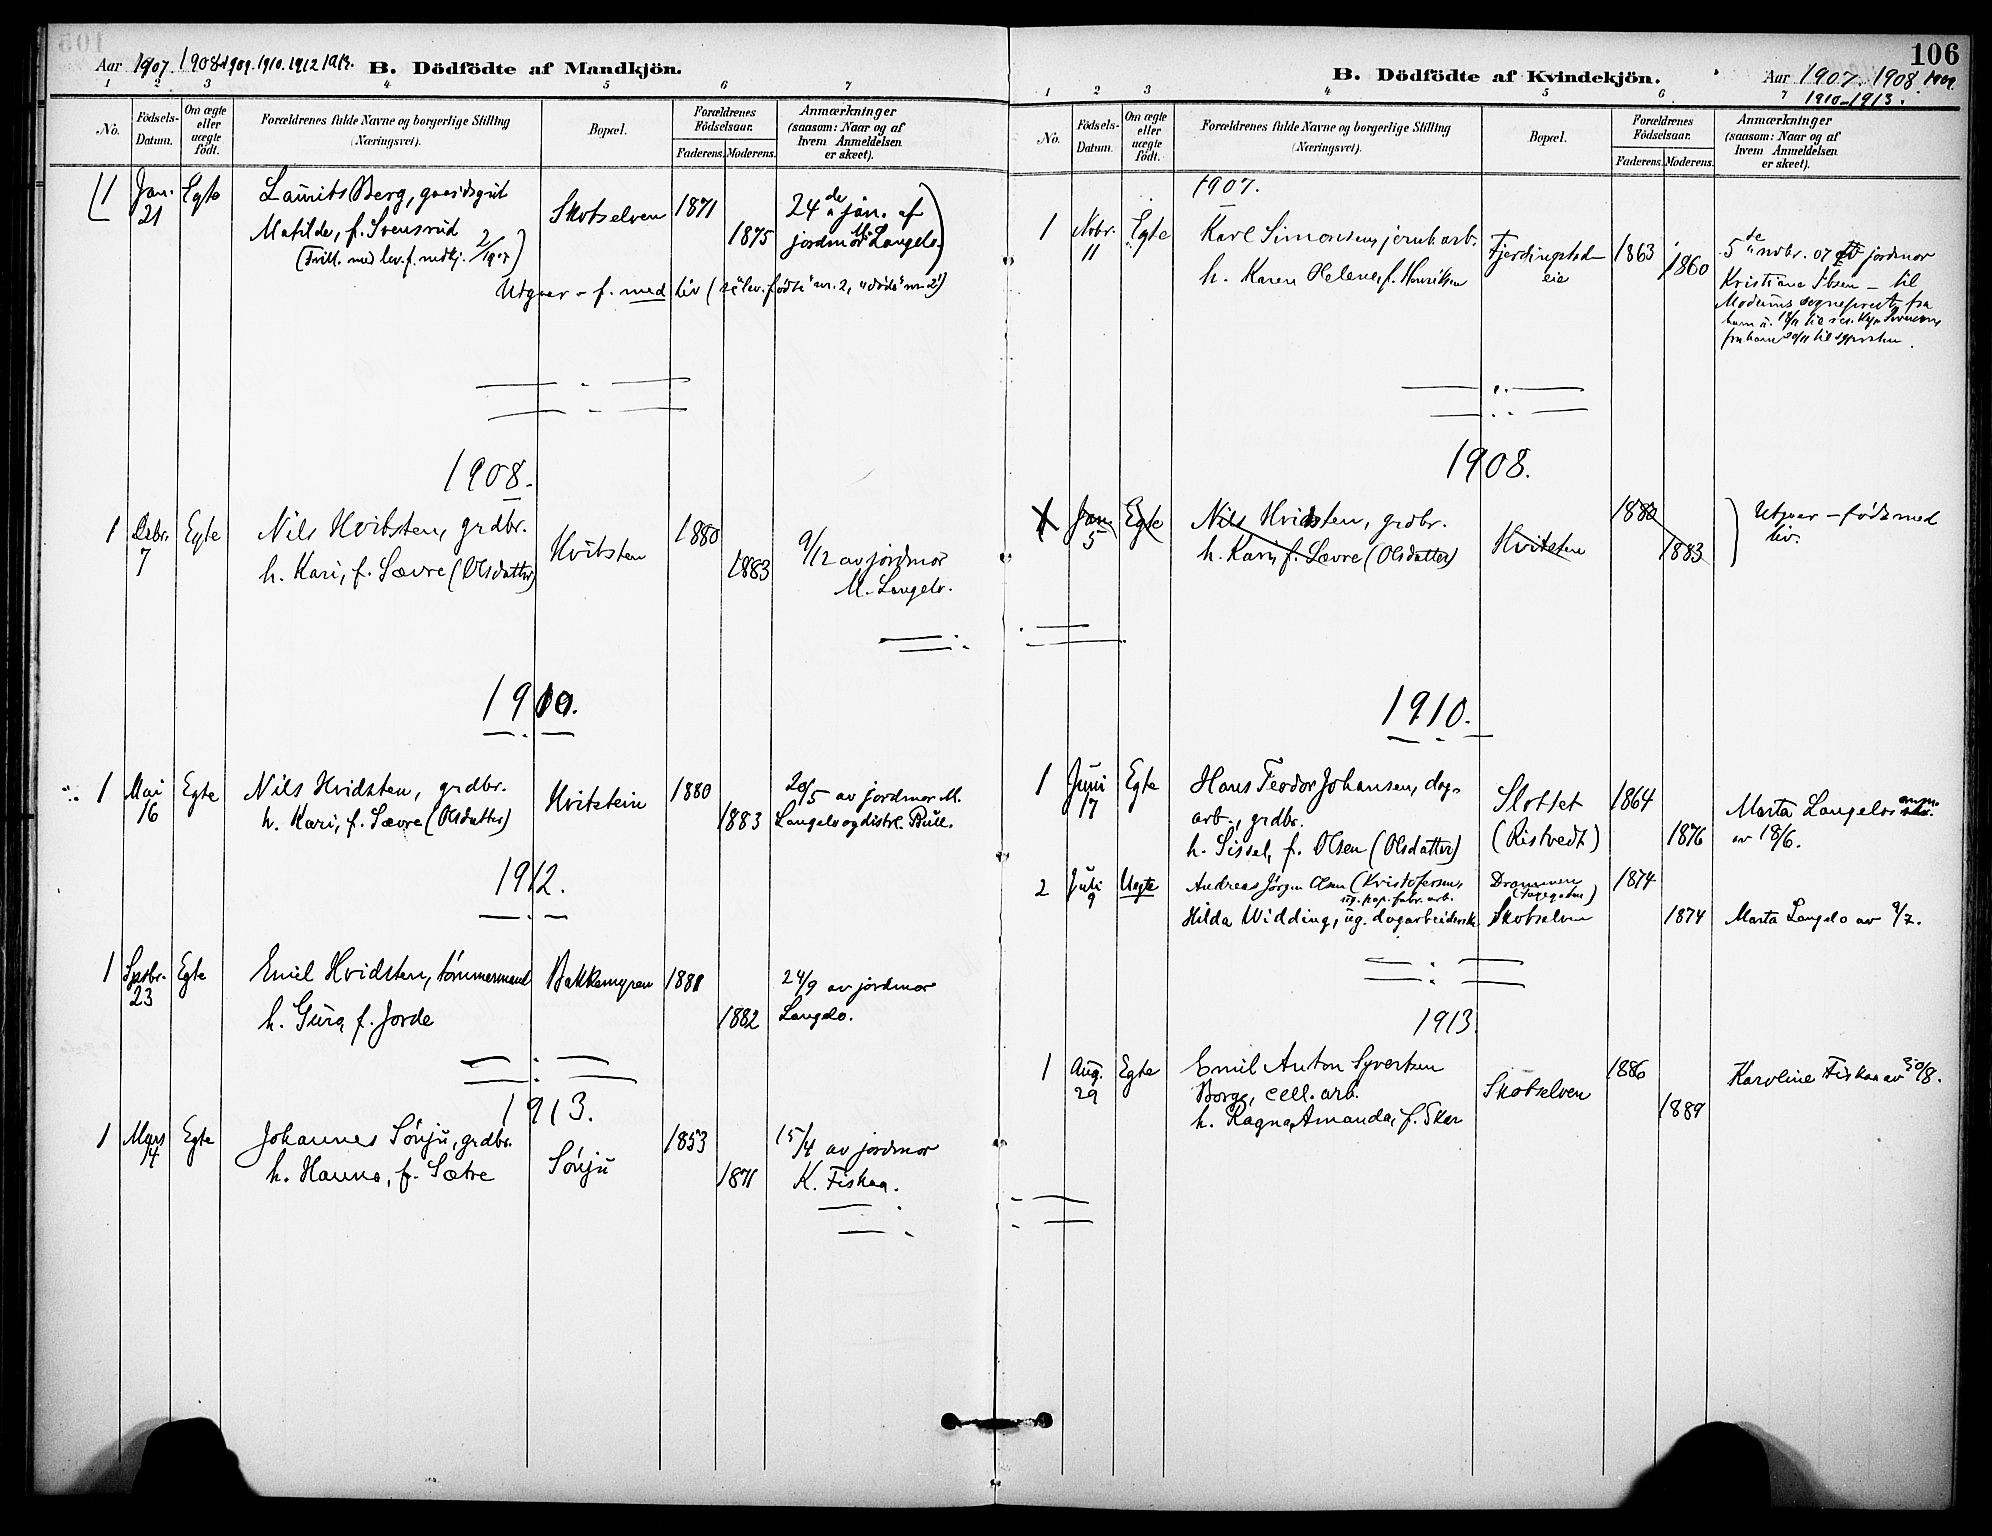 Aar 1907 1908 1909. 1910. 1912 1913. B. Dödfödte af Mandkjön.
1 2 3 4 5 6 7
No. Födsels-Datum. Om ægte eller uægte födt. Forældrenes fulde Navne og borgerlige Stilling (Næringsvei). Bopæl. Forældrenes Födselsaar. Faderens. Moderens. Anmærkninger (saasom: Naar og af hvem Anmeldelsen er skeet).
1 Jan. 21 Egte Laurits Berg, gaardsgut Skotselven 1871 24de jan. af
Matilde, f. Svensrud 1875 jordmor M. Langelo.
(Tvill. med lev. f. mdkj. 2/1907)
Utgaar – f. med liv ( se lev. födte" nr. 2, "döde" nr. 2)
1908.
1 Debr. 7 Egte Nils Hvitsten, grdbr. Hvitsten 1880 9/12 av jordmor
h. Kari, f. Sævre (Olsdatter) 1883 M. Langelo.
1910.
1 Mai 16 Egte Nils Hvidsten, grdbr. Hvitstein 1880 20/5 av jordmor M.
h. Kari, f. Sævre (Olsdatter) 1883 Langelo og distrl. Bull.
1912.
1 Sptbr. 23 Egte Emil Hvidsten, tømmermand Bakkemyren 1881 24/9 av jordmor
h. Guro f. Jorde 1882 Langelo.
1913.
1 Mars 14 Egte Johannes Sønju, grdbr. Sønju 1853 15/4 av jordmor
h. Hanna, f. Sætre 1871 K. Fiskaa.
106
B. Dödfödte af Kvindekjön. Aar 1907. 1908. 1909.
1910–1913.
1 2 3 4 5 6 7
No. Födsels-Datum. Om ægte eller uægte födt. Forældrenes fulde Navne og borgerlige Stilling (Næringsvei). Bopæl. Forældrenes Födselsaar. Faderens. Moderens. Anmærkninger (saasom: Naar og af hvem Anmeldelsen er skeet).
1907.
1 Nvbr. 11 Egte Karl Simonsen, jernb. arb. Fjerdingstad- 1863 5de nvbr. 07 av jordmor
h. Karen Helene, f. Henriksen eie 1860 Kristiane Ibsen – til
Modums sogneprest, fra
ham
fra ham 20/11 til
1908.
1 Jan. 5 Egte Nils Hvidsten, grdbr. Hvitsten 1880 Utgaar – födt med
h. Kari, f. Sævre (Olsdatter) 1883 liv.
1910.
1 Juni 17 Egte Hans Feodor Johansen, dag- Slottet 1864
arb., grdbr. Marta Langelo anm.
h. Sissel, f. Olsen (Olsdatter) (Ristvedt) 1876 av 18/6.
2 Juli 9 Uegte Andreas Jørgen Olsen (Kristofersen, Drammen 1874
ug. pap. fabr. arb.
Hilda Widding, ug. dagarbeiderske Skotselven 1874 Marta Langelo av 9/7.
1913
1 Aug. 29 Egte Emil Anton Syvertsen 1886 Karoline Fiskaa av 30/8.
Borge, cell. arb. Skotselven
h. Ragna Amanda, f. Skar 1889